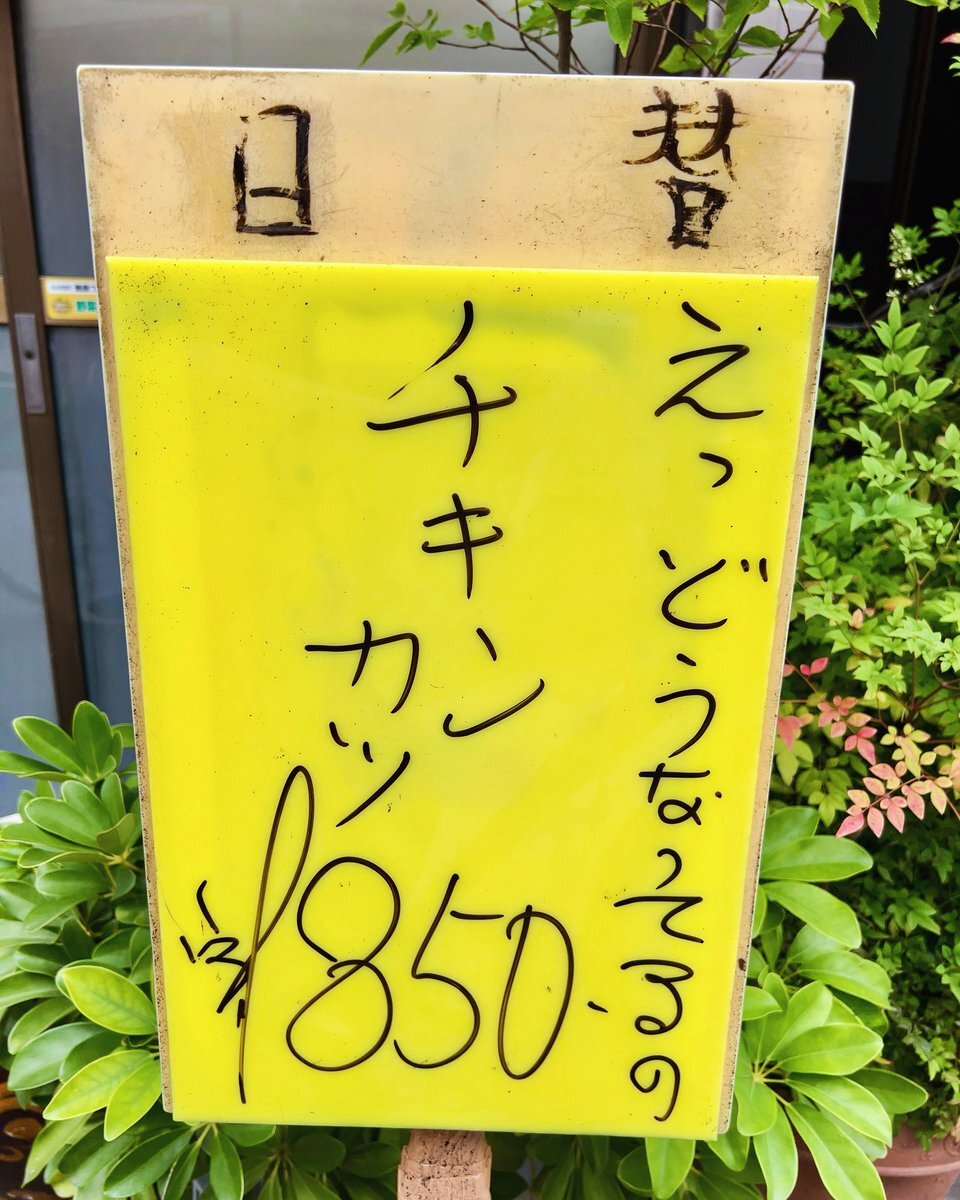 日替
えっどうなってるの
チキン
カツ
¥850
野菜